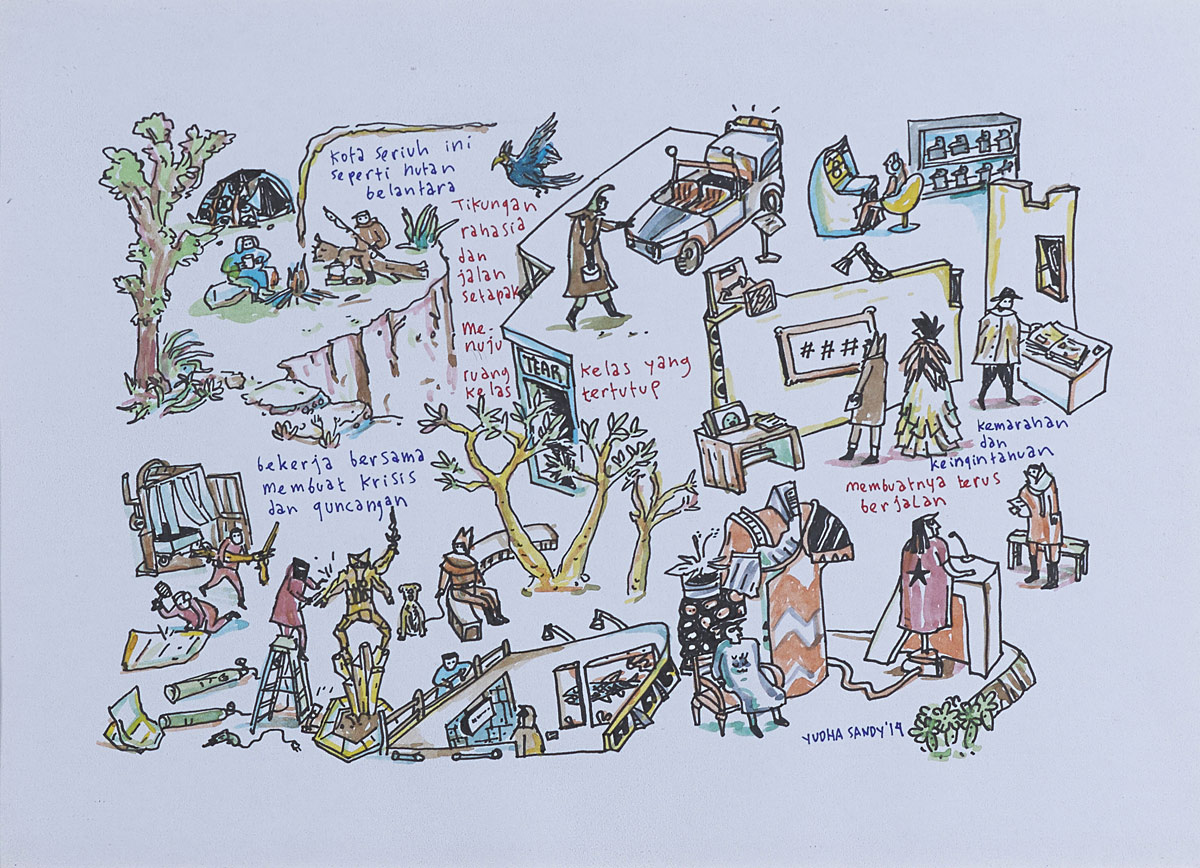 Kota seriuh ini
seperti hutan
belantara
Tikungan
rahasia
dan
jalan
setapak
Me-
nuju
ruang
kelas
TEAR
kelas yang
tertutup
####
kemarahan
dan
keingintahuan
membuatnya terus
berjalan
bekerja bersama
membuat krisis
dan guncangan
YUDHA SANDY'14